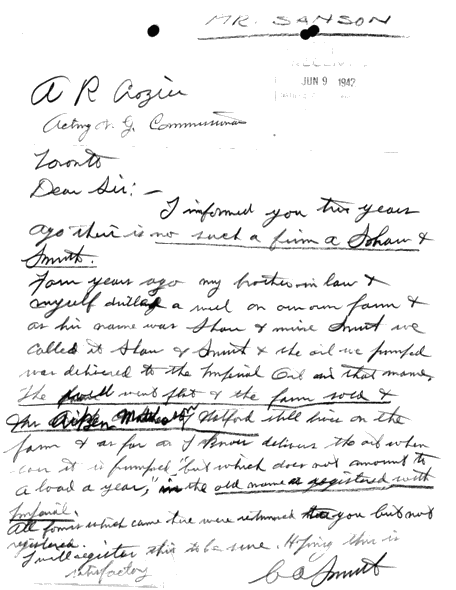 MR. SANSON
RECEIVED
JUN 9 1942
A R Crozier
Acting N. G. Commissioner
Toronto
Dear Sir: —
I informed you two years
ago their is no such a firm a Shaw &
Smith.
Four years ago my brother in law &
myself drilled a well on our own farm &
as his name was Shaw & mine Smith we
called it Shaw & Smith & the oil we pumped
was delivered to the Imperial Oil in that name.
The well went flat & the farm sold &
Mr Aiken Petrolia still lives on the
farm & as far as I know delivers the oil when
ever it is pumped "but which does not amount to
a load a year," in the old name as registered with
Imperial.
All forms which came here were returned to you but not
registered.
I will register this to be sure. Hoping this is
satisfactory
C A Smith